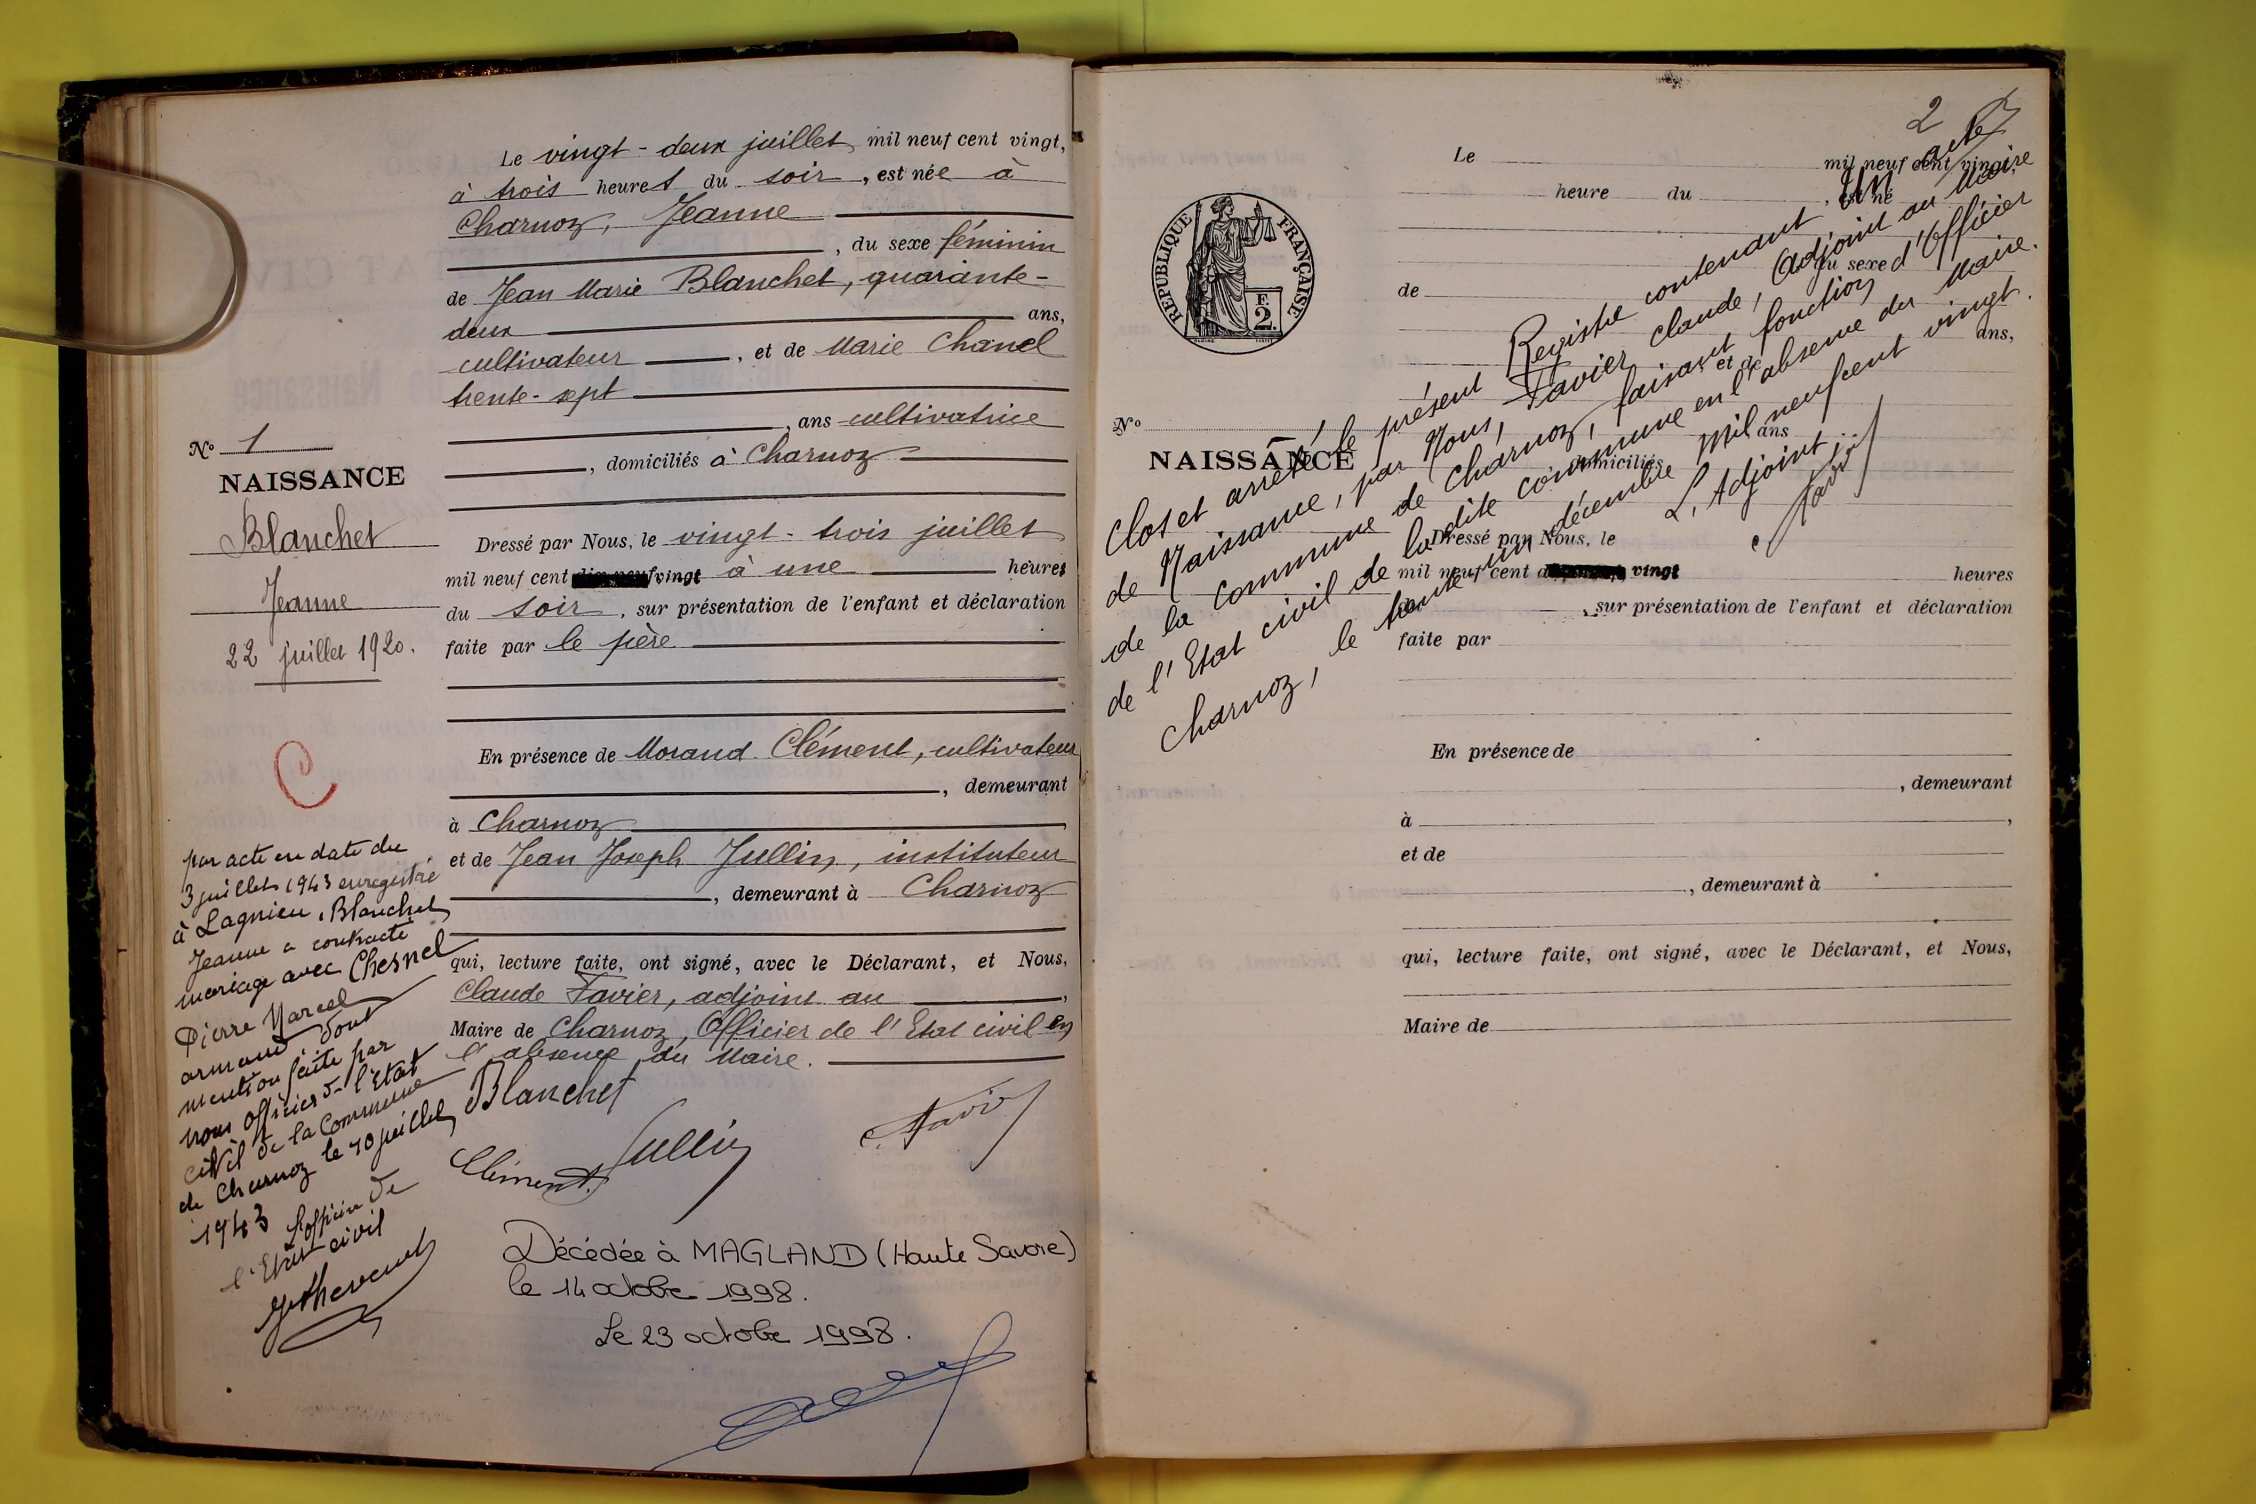 Le vingt-deux juillet mil neuf cent vingt,
à trois heures du soir, est née à
Charnoz, Jeanne
, du sexe féminin
de Jean Marie Blanchet, quarante-
deux ans,
cultivateur, et de Marie Chanel
trente-sept
, ans cultivatrice
, domiciliés à Charnoz
Dressé par Nous, le vingt-trois juillet
mil neuf cent vingt à une heures
du soir, sur présentation de l'enfant et déclaration
faite par le père
En présence de Morand Clément, cultivateur
, demeurant
à Charnoz
et de Jean Joseph Jullin, instituteur
, demeurant à Charnoz
qui, lecture faite, ont signé, avec le Déclarant, et Nous,
Claude Favier, adjoint au,
Maire de Charnoz, Officier de l'Etat civil en
l'absence du Maire.
Blanchet
Clément Jullin C. Favier
Décédée à MAGLAND (Haute Savoie)
le 14 octobre 1998.
Le 23 octobre 1998.
N° 1
NAISSANCE
Blanchet
Jeanne
22 juillet 1920.
C
par acte en date du
3 juillet 1943 enregistré
à Lagnieu, Blanchet
Jeanne a contracté
mariage avec Chesnel
Pierre Marcel
armand dont
mention faite par
nous officier de l'Etat
civil de la Commune
de Charnoz le 10 juillet
1943 L'officier de
l'Etat civil
2
REPUBLIQUE FRANÇAISE
F.
2.
N°
NAISSANCE
Le mil neuf cent vingt,
heure du , est né
du sexe
de
ans,
et de
ans
domiciliés
Dressé par Nous, le
mil neuf cent vingt heures
, sur présentation de l'enfant et déclaration
faite par
En présence de
, demeurant
à ,
et de
, demeurant à
qui, lecture faite, ont signé, avec le Déclarant, et Nous,
Maire de
Clos et arrêté le présent Registre contenant un acte
de Naissance, par Nous, Favier Claude, Adjoint au Maire
de la commune de Charnoz, faisant fonction d'Officier
de l'Etat civil de la dite commune en l'absence du Maire.
Charnoz, le trente-un décembre mil neuf cent vingt.
L'Adjoint:
C. Favier